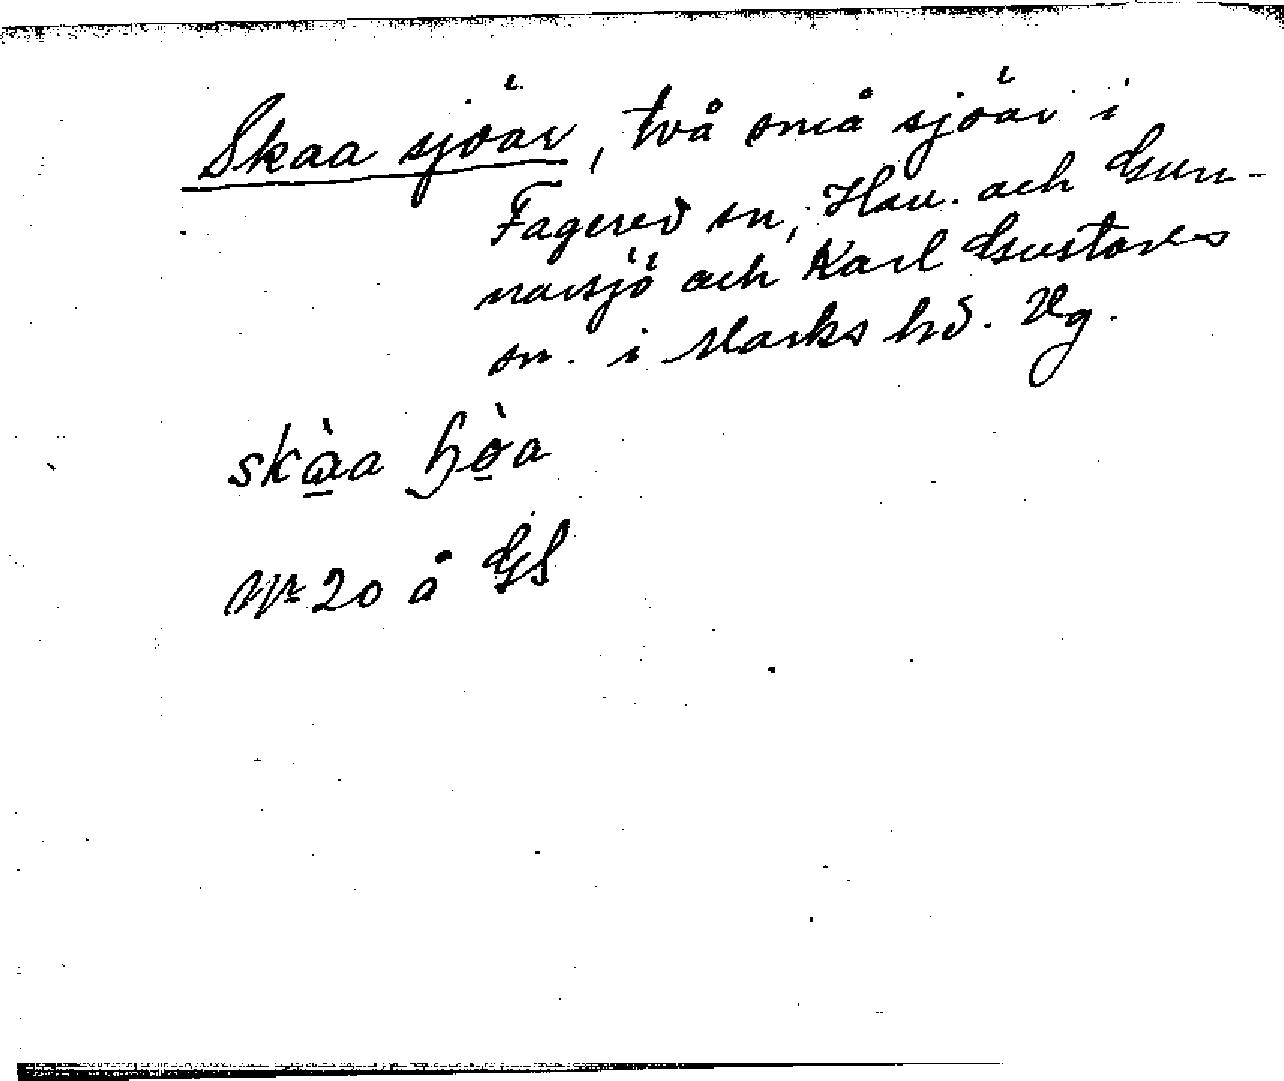 Skaa sjöar, två små sjöar i
Fagered sn, Hall. och Gun-
narsjö och Karl Gustavs
sn. i Marks hd. Vg.
skàa ꜧòa
Nr 20 å GS